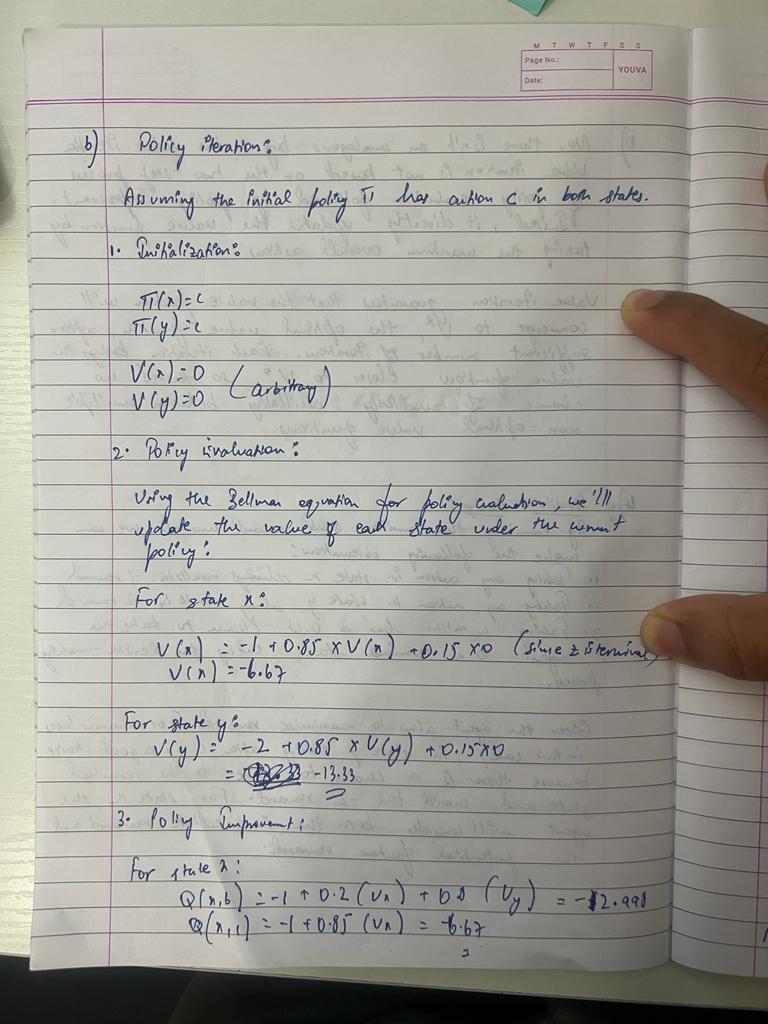 M T W T F S S
Page No.:
YOUVA
Date:
b) Policy iteration:
Assuming the initial policy π has action c in both states.
1. Initialization:
π(x)=c
π(y)=c
V(x)=0
V(y)=0 (arbitrary)
2. Policy Evaluation:
Using the Bellman equation for policy evaluation, we'll
update the value of each state under the current
policy:
For state x:
V(x) = -1 + 0.85 × V(x) + 0.15 × 0 (since z is terminal)
V(x) = -6.67
For state y:
V(y) = -2 + 0.85 × V(y) + 0.15×0
= -13.33
3. Policy Improvement:
For state x:
Q(x,b) = -1 + 0.2 (Vx) + 0.8 (Vy) = -12.998
= -1 + 0.85 (Vx) = -6.67